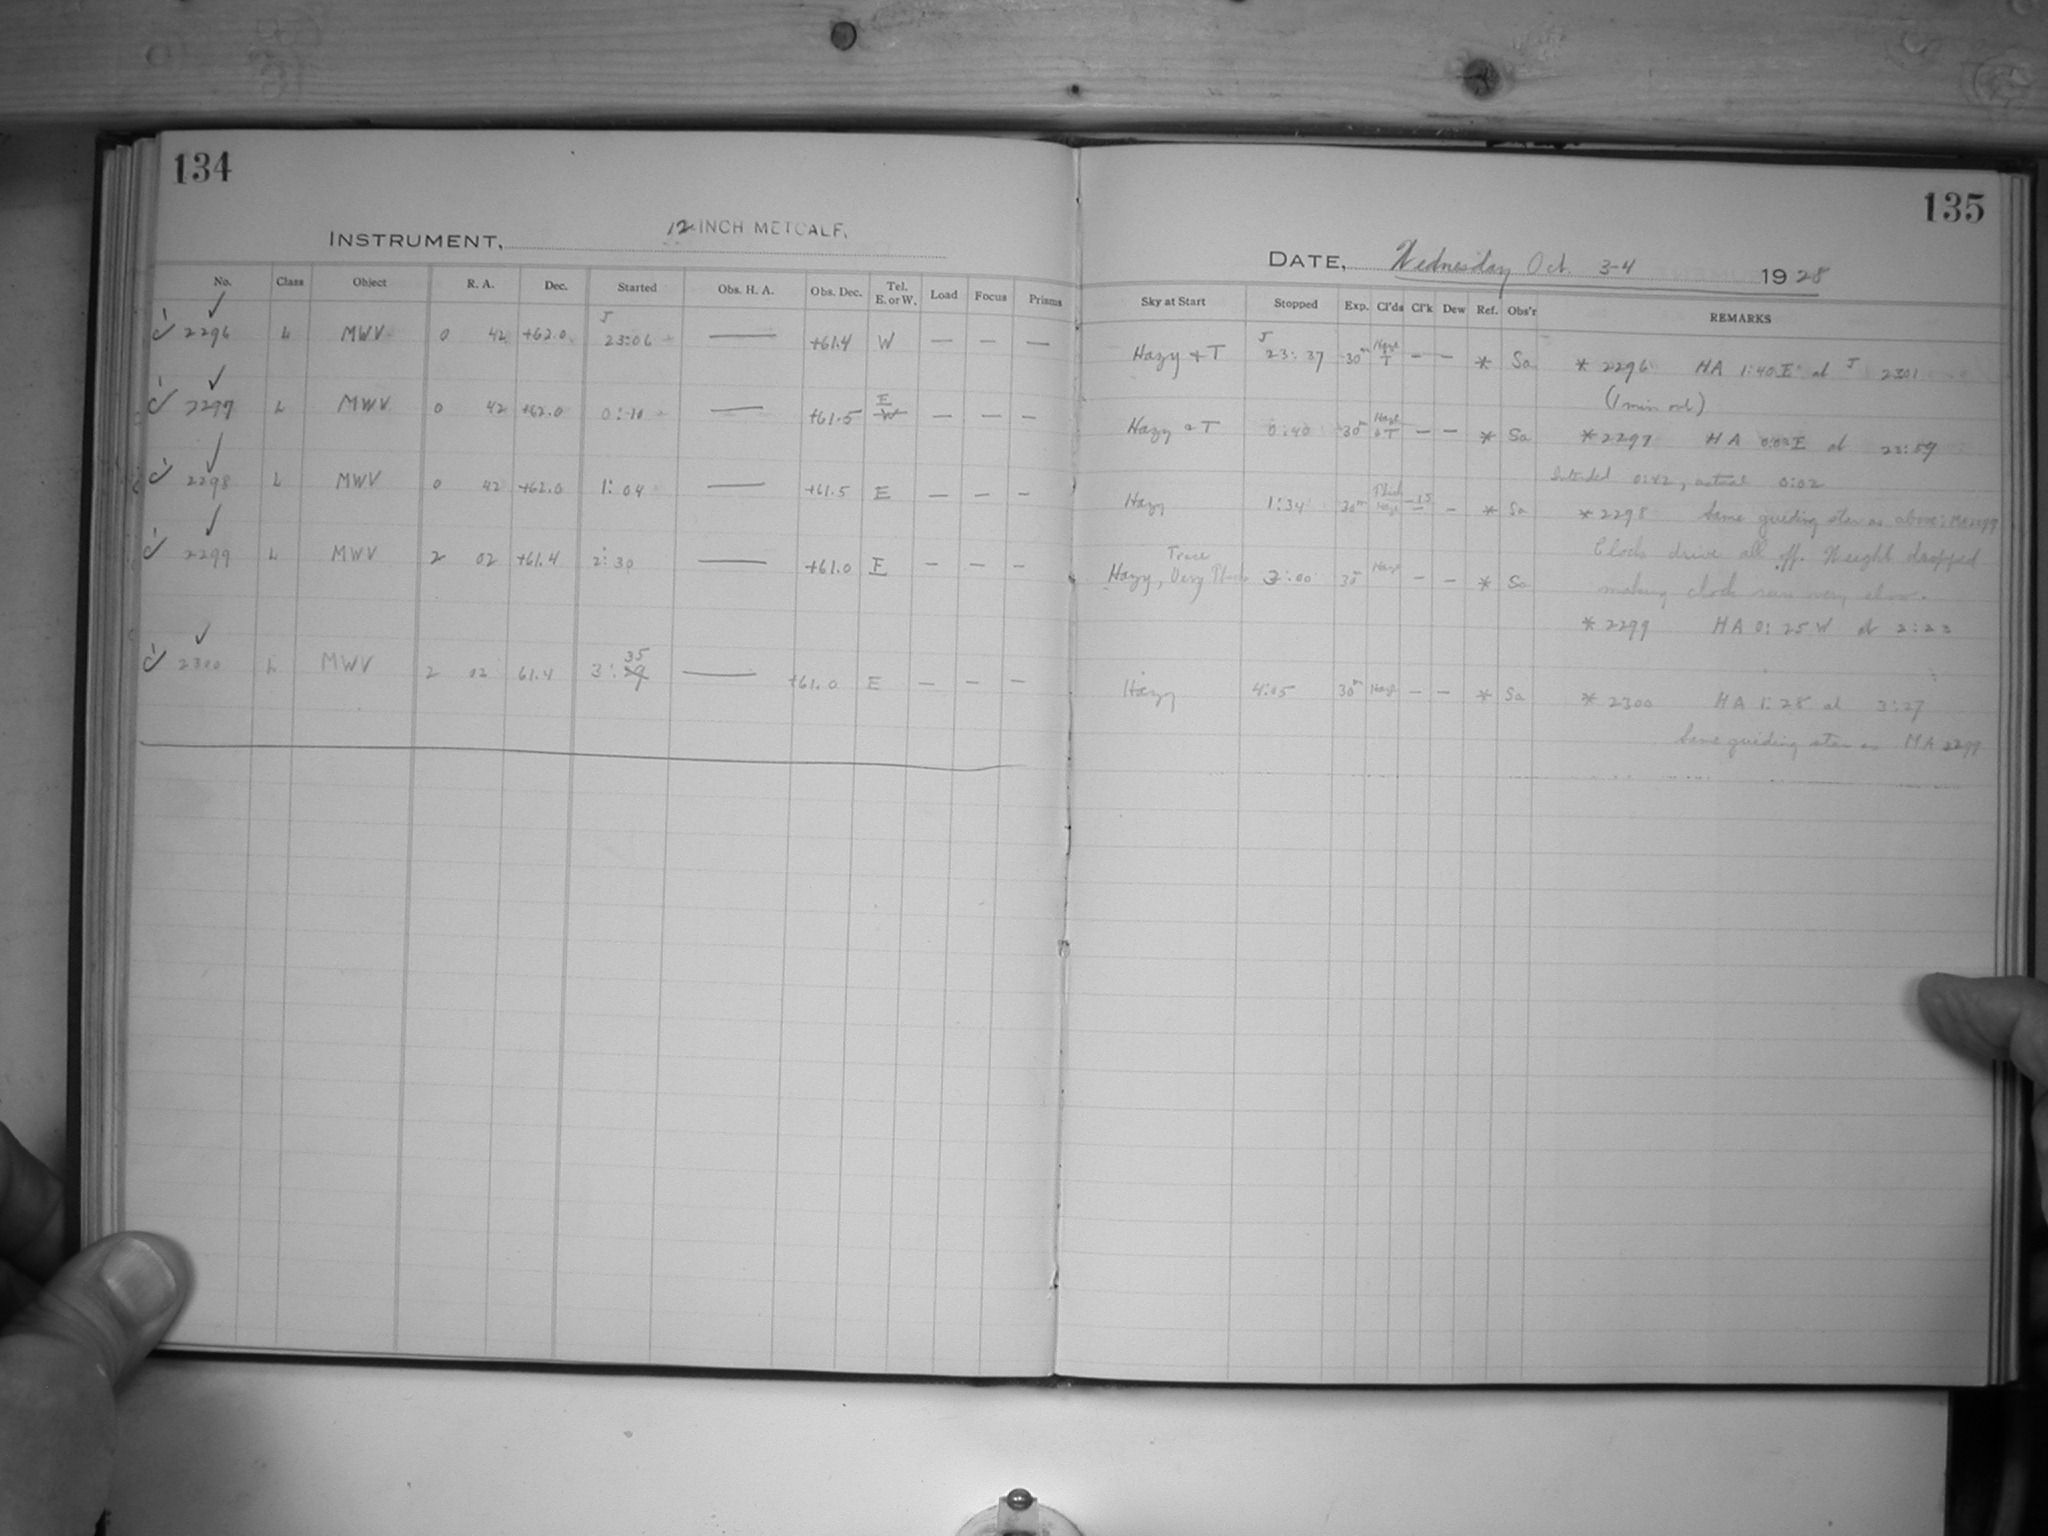 134
INSTRUMENT, 12-INCH METCALF.
No. Class Object R. A. Dec. Started Obs. H. A. Obs. Dec. Tel. E. or W. Load Focus Prisms
2296 L MWV 0 42 +62.0 J 23:06 — +61.4 W — — —
2297 L MWV 0 42 +62.0 0:10 — +61.5 E W — — —
2298 L MWV 0 42 +62.0 1:04 — +61.5 E — — —
2299 L MWV 2 02 +61.4 2:30 — +61.0 E — — —
2300 L MWV 2 02 61.4 3:35 — +61.0 E — — —
135
DATE, Wednesday Oct. 3-4 1928
Sky at Start Stopped Exp. Cl'ds Cl'k Dew Ref. Obs'r REMARKS
Hazy + T J 23:37 30m Haze T — — * Sa * 2296 HA 1:40 E at J 2301
(1 min out)
Hazy & T 0:40 30m Haze + T — — * Sa * 2297 HA 0:03 E at 23:59
Intended 0:42, actual 0:02
Hazy 1:34 30m Thick Haze -15 — * Sa * 2298 Same guiding star as above:
Clock drive all off. Weight dropped
making clock run very slow.
Trace
Hazy, Very 3:00 30 Haze — — * Sa
* 2299 HA 0:25 W at 2:23
Hazy 4:05 30m Haze — — * Sa * 2300 HA 1:28 at 3:27
Same guiding star as MA 2299